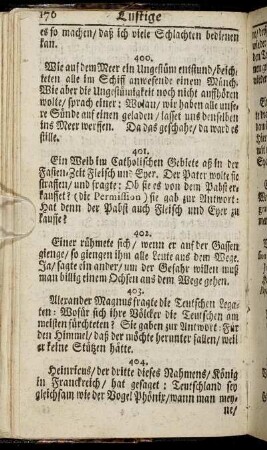 176 Lustige
es so machen/ daß ich viele Schlachten bedienen
kan.
400.
Wie auf dem Meer ein Ungestüm entstund/ beich-
teten alle im Schiff anwesende einem Münch.
Wie aber die Ungestümigkeit noch nicht auffhören
wolte/ sprach einer: Wolan/ wir haben alle unse-
re Sünde auf einen geladen/ lasset uns denselben
ins Meer werffen. Da das geschahe/ da ward es
stille.
401.
Ein Weib im Catholischen Gebiete aß in der
Fasten-Zeit Fleisch und Eyer. Der Pater wolte sie
straffen/ und fragte: Ob sie es von dem Pabst er-
kauffet? (die Permission) sie gab zur Antwort:
Hat denn der Pabst auch Fleisch und Eyer zu
kauffe?
402.
Einer rühmete sich/ wenn er auf der Gassen
gienge/ so giengen ihm alle Leute aus dem Wege.
Ja/ sagte ein ander/ um der Gefahr willen muß
man billig einem Ochsen aus dem Wege gehen.
403.
Alexander Magnus fragte die Teutschen Lega-
ten: Wofür sich ihre Völcker die Teutschen am
meisten fürchteten? Sie gaben zur Antwort: Für
den Himmel/ daß der möchte herunter fallen/ weil
er keine Stützen hätte.
404.
Heinricus/ der dritte dieses Nahmens/ König
in Franckreich/ hat gesaget: Teutschland sey
gleichsam wie der Vogel Phönix/ wann man mey-
ne/